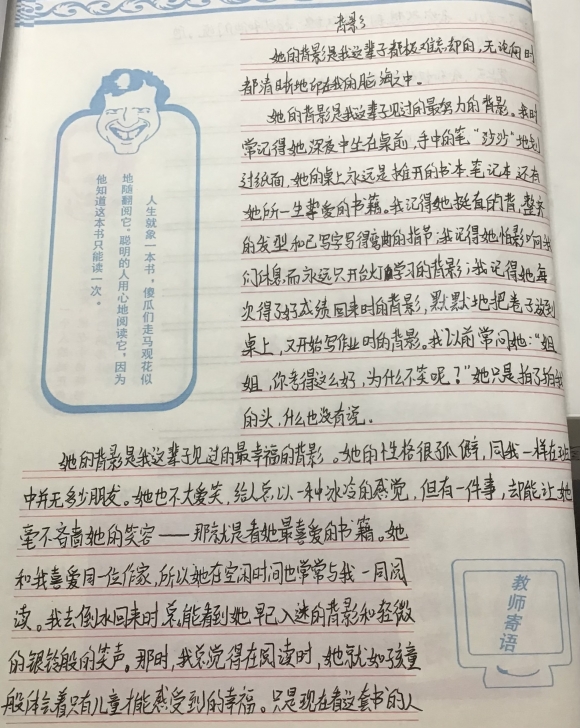 背影
她的背影是我这辈子都极难忘却的，无论何时
都清晰地印在我的脑海之中。
她的背影是我这辈子见过的最努力的背影。我时
常记得她深夜中坐在桌前，手中的笔“沙沙”地划
过纸面，她的桌上永远是摊开的书本笔记本还有
她所一生挚爱的书籍。我记得她挺直的背，整齐
的发型和已写字写得弯曲的指节；我记得她怕影响我
们休息而永远只开台灯学习的背影；我记得她每
次得了好成绩回来时的背影，默默地把卷子放到
桌上，又开始写作业时的背影。我以前常问她：“姐
姐，你考得这么好，为什么不笑呢？”她只是拍了拍我
的头，什么也没有说。
她的背影是我这辈子见过的最幸福的背影。她的性格很孤僻，同我一样在班
中并无多少朋友。她也不大爱笑，给人总以一种冰冷的感觉，但有一件事，却能让她
毫不吝啬她的笑容——那就是看她最喜爱的书籍。她
和我喜爱同一位作家，所以她在空闲时间也常常与我一同阅
读。我去倒水回来时总能看到她早已入迷的背影和轻微
的银铃般的笑声。那时，我总觉得在阅读时，她就如孩童
般体会着只有儿童才能感受到的幸福。只是现在看这套书的人
人生就象一本书，傻瓜们走马观花似
地随翻阅它，聪明的人用心地阅读它，因为
他知道这本书只能读一次。
教师寄语